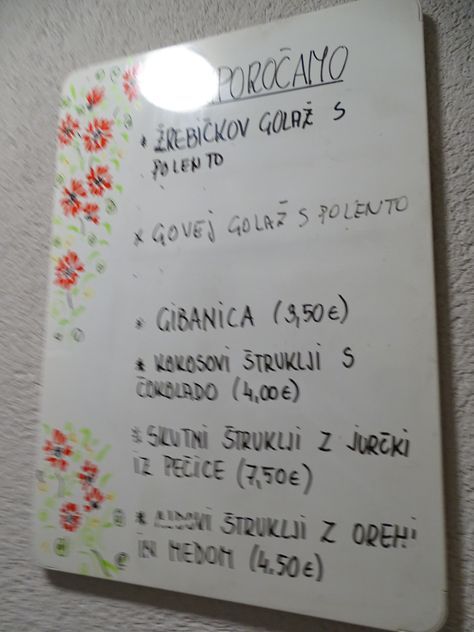 POROČAMO
* ŽREBIČKOV GOLAŽ S
POLENTO
* GOVEJ GOLAŽ S POLENTO
* GIBANICA (3,50€)
* KOKOSOVI ŠTRUKLJI S
ČOKOLADO (4,00€)
* SKUTNI ŠTRUKLJI Z JURČKI
IZ PEČICE (7,50€)
* AJDOVI ŠTRUKLJI Z OREHI
IN MEDOM (4.50€)